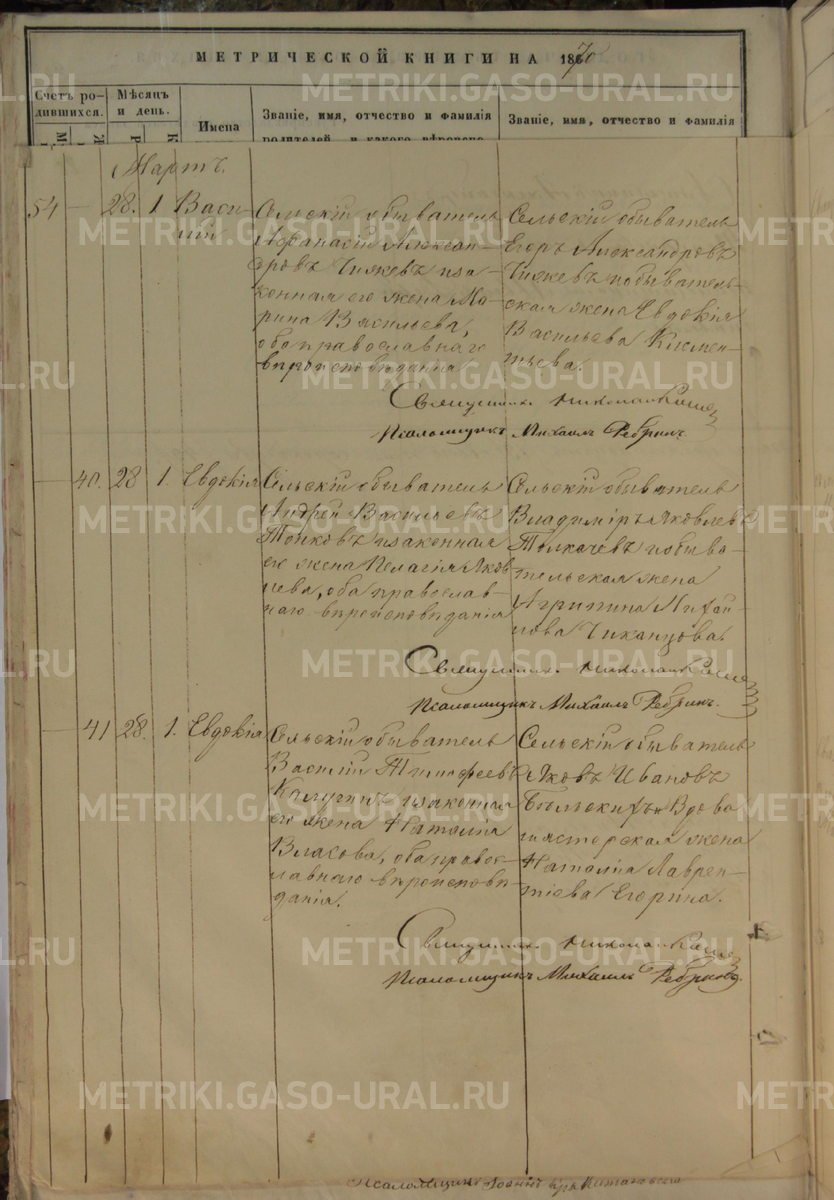 МЕТРИЧЕСКОЙ КНИГИ НА 1870
Счетъ ро-
дившихся.
Мѣсяцъ
и день.
Имена
Званіе, имя, отчество и фамилія
родителей, и какого вѣроиспо-
Званіе, имя, отчество и фамилія
Мартъ.
54 — 28. 1 Васи-
лій
Сельскій обыватель
Афанасій Алексан-
дровъ Чижевъ и за-
конная его жена Ма-
рина Васильева,
оба православнаго
вѣроисповѣданія
Сельскій обыватель
Егоръ Александровъ
Чижевъ и обыватель-
ская жена Евдокія
Васильева Клемен-
тьева.
Священникъ Николай
Псаломщикъ Михаилъ Ребринъ
— 40. 28 1. Евдокія
Сельскій обыватель
Андрей Васильевъ
и законная
его жена Пелагія Яков-
лева, оба православ-
наго вѣроисповѣданія
Сельскій обыватель
Владиміръ Яковлевъ
Толкачевъ и обыва-
тельская жена
Агрипина Михай-
лова
Священникъ Николай
Псаломщикъ Михаилъ Ребринъ.
— 41 28. 1. Евдокія
Сельскій обыватель
Василій Тимофеевъ
Калугинъ и законная
его жена Наталія
Власова, оба право-
славнаго вѣроисповѣ-
данія.
Сельскій обыватель
Яковъ Ивановъ
Бѣльскихъ и вдова
мастерская жена
Наталія Лаврен-
тіева Егорина.
Священникъ Николай
Псаломщикъ Михаилъ Ребринъ.
Псаломщикъ Іоаннъ
METRIKI.GASO-URAL.RU